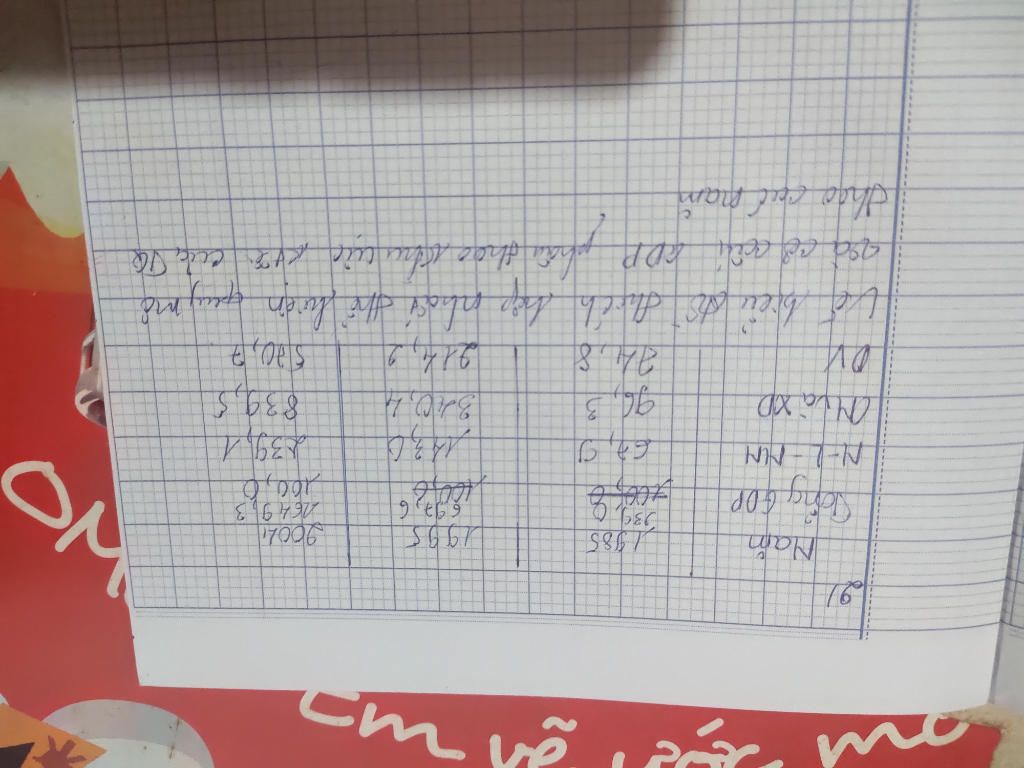 2)
Năm 1985 1995 2004
Tổng GDP 239,0 697,6 1649,3
100,0 100,0 100,0
N-L-NN 67,9 143,0 239,1
CN và XD 96,3 340,4 839,5
DV 74,8 214,2 570,7
Vẽ biểu đồ thích hợp nhất thể hiện quy mô
và cơ cấu GDP phân theo khu vực KTZ của TQ
theo các năm
Em vẽ ước mơ